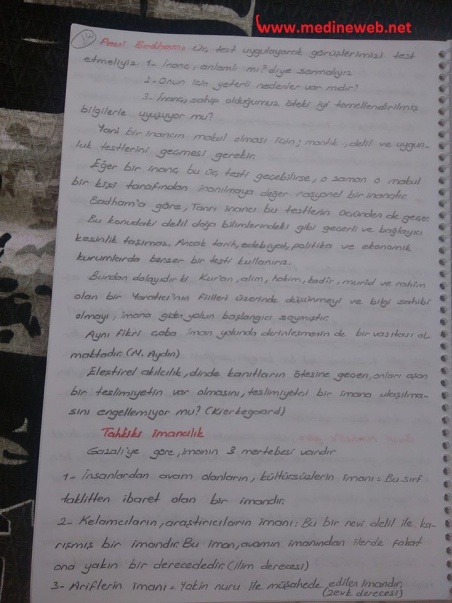 www.medineweb.net
Paul Badham: Üç test uygulayarak görüşlerimizi test
etmeliyiz. 1- İnanç anlamlı mı? diye sormalıyız
2- Onun için yeterli nedenler var mıdır?
3- İnanç, sahip olduğumuz öteki iyi temellendirilmiş
bilgilerle uyuşuyor mu?
Yani bir inancın makul olması için; mantık, delil ve uygun-
luk testlerini geçmesi gerekir.
Eğer bir inanç bu üç testi geçebilirse, o zaman o makul
bir kişi tarafından inanılmaya değer rasyonel bir inançtır.
Badham'a göre, Tanrı inancı bu testlerin üçünden de geçer.
Bu konudaki delil doğa bilimlerindeki gibi geçerli ve bağlayıcı
kesinlik taşımaz. Ancak tarih, edebiyat, politika ve ekonomik
kurumlarda benzer bir testi kullanırız.
Bundan dolayıdır ki Kur'an, alim, hakim, kadir, murid ve rahim
olan bir Yaratıcı'nın fiilleri üzerinde düşünmeyi ve bilgi sahibi
olmayı, imana giden yolun başlangıcı saymıştır.
Aynı fikri çaba iman yolunda derinleşmenin de bir vasıtası ol-
maktadır. (M. Aydın)
Eleştirel akılcılık, dinde kanıtların ötesine geçen, onları aşan
bir teslimiyetin var olmasını, teslimiyetçi bir imana ulaşılma-
sını engellemiyor mu? (Kierkegaard)
Tahkiki İmancılık
Gazali'ye göre, imanın 3 mertebesi vardır
1- İnsanlardan avam olanların, kültürsüzlerin imanı = Bu sırf
taklitten ibaret olan bir imandır.
2- Kelamcıların, araştırıcıların imanı: Bu bir nevi delil ile ka-
rışmış bir imandır. Bu iman, avamın imanından ilerde fakat
ona yakın bir derecededir. (İlim derecesi)
3- Ariflerin imanı = Yakin nuru ile müşahede edilen imandır.
(zevk derecesi)